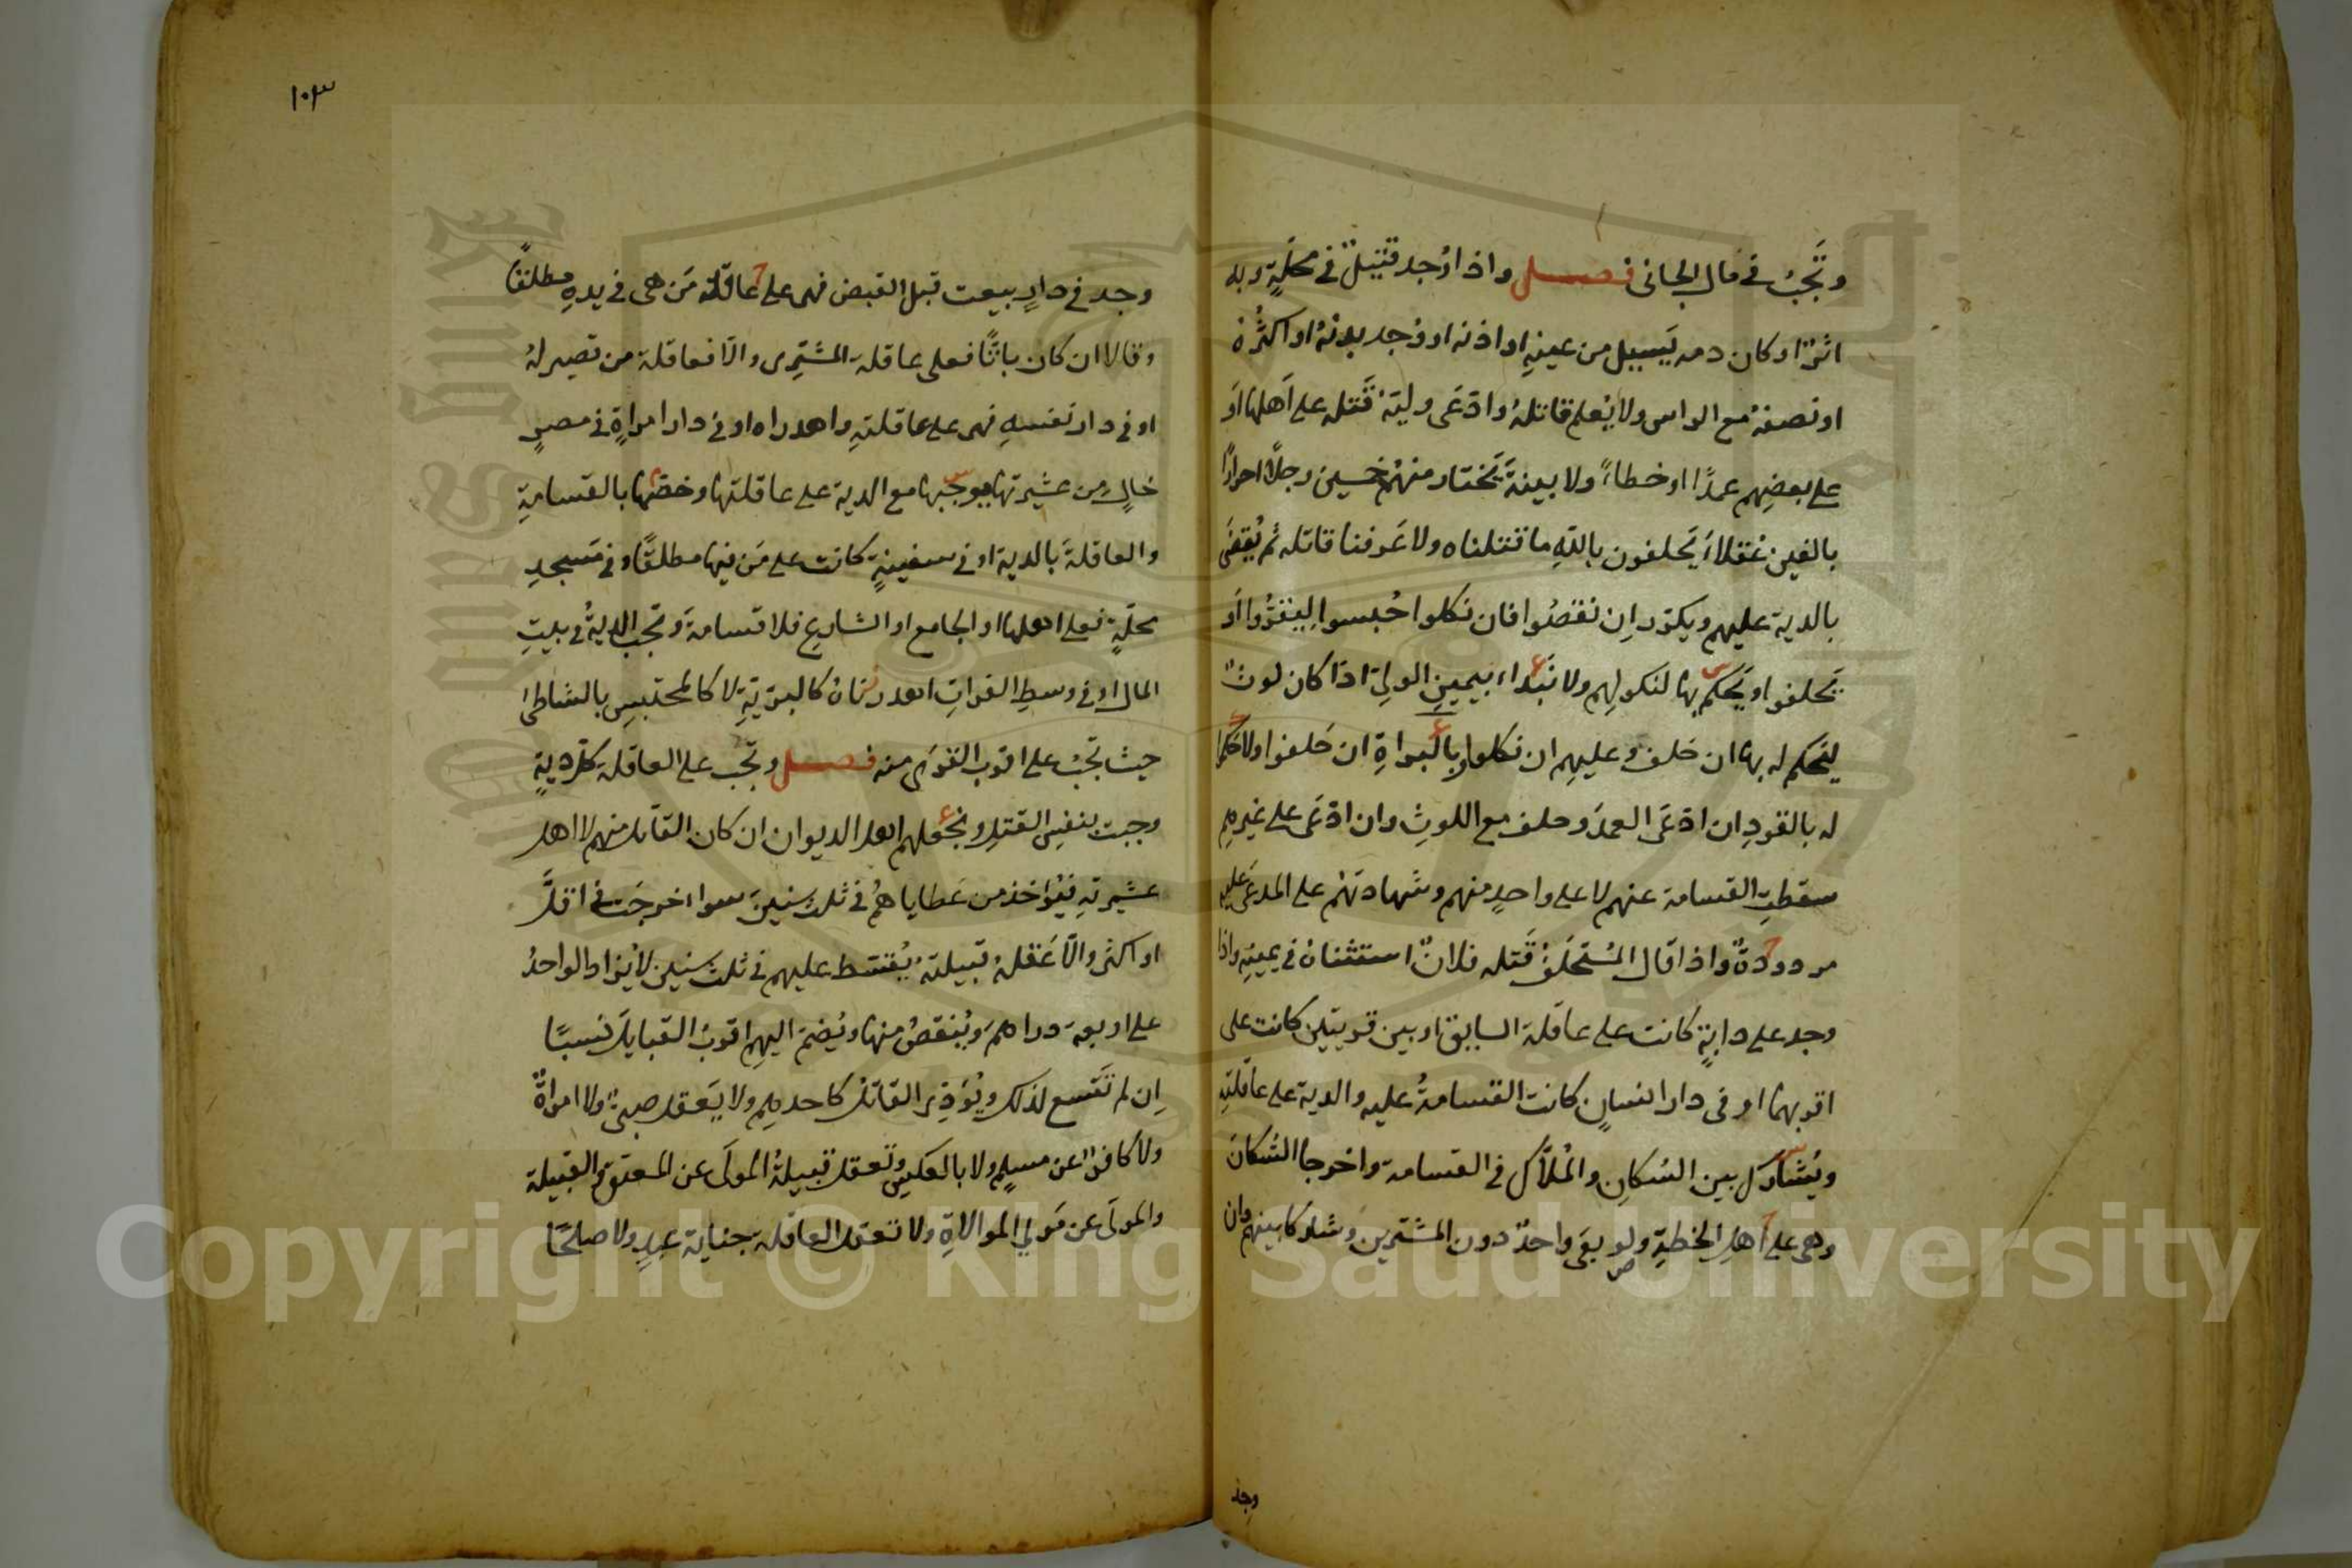 وتجب في مال الجاني فصل واذا وجد قتيل في محلة وبه
اثر او كان دمه يسيل من عينه او اذنه او وجد بدنه او اكثره
او نصفه مع الراس ولا يعلم قاتله وادعى وليه قتله على اهلها او
على بعضهم عمدا او خطاء ولا بينة يختار منهم خمسين رجلا احرارا
بالغين عقلاء يحلفون بالله ما قتلناه ولا عرفنا قاتله ثم يقضى
بالدية عليهم ويكرر ان نقصوا فان نكلوا حبسوا ليقروا او
يحلفوا او يحكم بها لنكولهم ولا نبداء بيمين الولي اذا كان لوث
ليحكم له بها ان حلف وعليهم ان نكلوا وبالبراة ان حلفوا ولا حكما
له بالقود ان ادعى العمد وحلف مع اللوث وان ادعى على غيرهم
سقطت القسامة عنهم لا على واحد منهم وشهادتهم على المدعى عليه
مردودة واذا قال المستحلف قتله فلان استثناه في يمينه واذا
وجد على دابة كانت على عاقلة السايق او بين قريتين كانت على
اقربهما او في دار انسان كانت القسامة عليه والدية على عاقلته
ويشارك بين السكان والملاك في القسامة واخرجا السكان
وهي على اهل الخطة ولو بقى واحد دون المشترين وشاركا بينهم وان
وجد
١٠٣
وجد في دار بيعت قبل القبض فهي على عاقلة من هي في يده مطلقا
وقالا ان كان باتا فعلى عاقلة المشتري والا فعاقلة من تصير له
او في دار نفسه فهي على عاقلته واهدراه او في دار امراة في مصر
خال من عشيرتها يوجبها مع الدية على عاقلتها وخصها بالقسامة
والعاقلة بالدية او في سفينة كانت على من فيها مطلقا او في مسجد
محلة فعلى اهلها او الجامع او الشارع فلا قسامة وتجب الدية في بيت
المال او في وسط الفرات اهدرناه كالبرية لا كالمحتبس بالشاطئ
حيث تجب على اقرب القرى منه فصل وتجب على العاقلة كل دية
وجبت بنفس القتل ونجعلهم اهل الديوان ان كان القاتل منهم لا اهل
عشيرته فيؤخذ من عطاياهم في ثلث سنين سوا خرجت في اقل
او اكثر والا عقله قبيلته يقسط عليهم في ثلث سنين لا يزاد الواحد
على اربعة دراهم وينقص منها ويضم اليهم اقرب القبايل نسبا
ان لم تتسع لذلك ويؤدي القاتل كاحدهم ولا يعقل صبي ولا امراة
ولا كافر عن مسلم ولا بالعكس وتعقل قبيلة المولى عن المعتق والقبيلة
والمولى عن مولي الموالاة ولا تعقل العاقلة جناية عبد ولا صلحا
Copyright © King Saud University